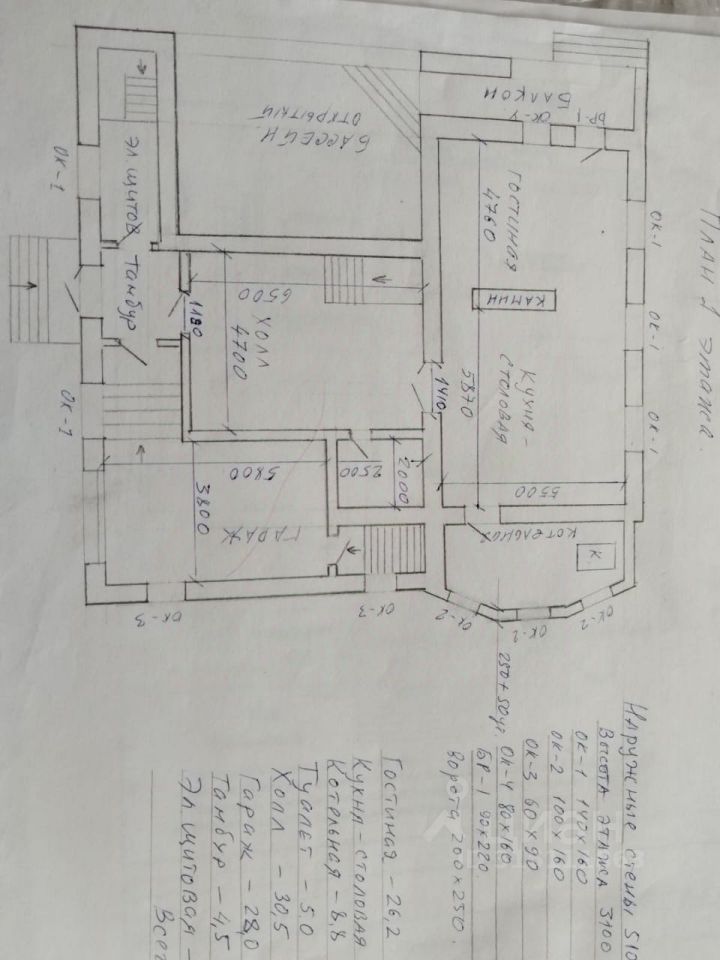 План 1 этажа.
ОК-1
ОК-1
ОК-1
БАЛКОН
БР-1
ОК-4
ГОСТИНАЯ
4760
КАМИН
КУХНЯ-
СТОЛОВАЯ
5870
5500
1410
КОТЕЛЬНАЯ
К.
ОК-2
ОК-2
ОК-2
БАССЕЙН
ОТКРЫТЫЙ
6500
ХОЛЛ
4700
1180
2500
2000
ЭЛ.ЩИТОВ
Тамбур
ОК-1
ОК-1
5800
3800
ГАРАЖ
ОК-3
ОК-3
Наружные стены 510
Высота этажа 3100
ОК-1 140х160
ОК-2 100х160
ОК-3 60х90
250+50ут. ОК-4 80х160
БР-1 90х220
Ворота 200х250.
Гостиная – 26,2
Кухня-столовая
Котельная – 8,8
Туалет – 5,0
Холл – 30,5
Гараж – 28,0
Тамбур – 4,5
Эл.щитовая –